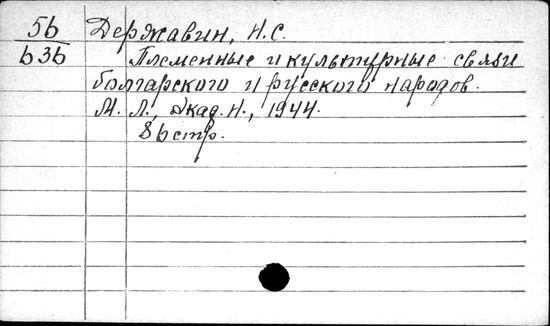 56 Державин, Н.С.
636 Племенные и культурные связи
болгарского и русского народов.
М. Л., Акад. Н., 1944.
86 стр.